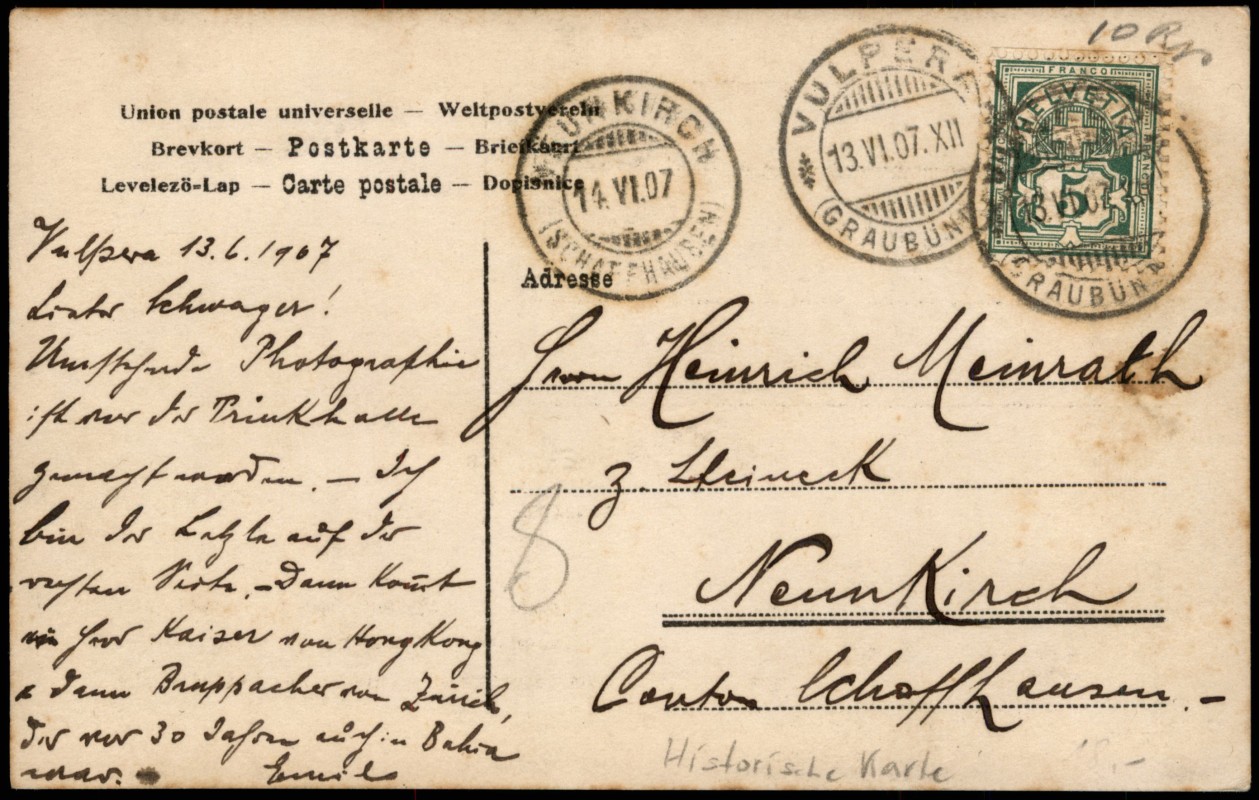 10 Rp
Union postale universelle — Weltpostverein
Brevkort — Postkarte — Briefkaart
Levelezö-Lap — Carte postale — Dopisnice
NEUNKIRCH
14.VI.07
(SCHAFFHAUSEN)
VULPERA
13.VI.07.XII
(GRAUBÜND
FRANCO
HELVETIA
5
13.VI.07
(GRAUBÜN
Vulpera 13.6.1907
Lieber Schwager!
Umstehende Photographie
ist vor der Trinkhalle
gemacht worden. — Ich
bin der Letzte auf der
rechten Seite. — Dann kom̄t
ein Herr Kaiser von HongKong
& dann Bruppacher von Zürich,
der vor 30 Jahren auch in Bahia
war. Emil
Adresse
Herrn Heinrich Meinrath
z. Steineck
Neunkirch
Canton Schaffhausen. —
8
Historische Karte
18,-